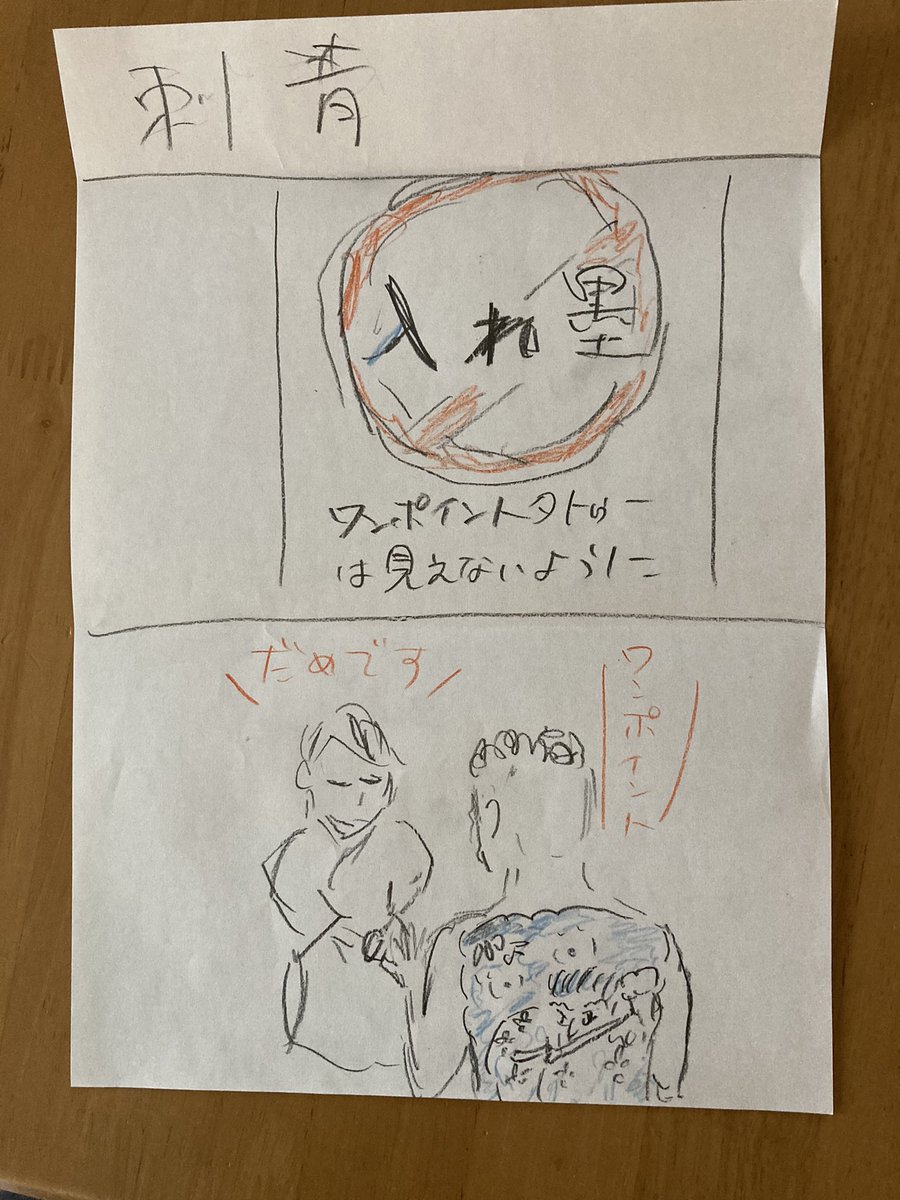 刺青
入れ墨
ワンポイントタトゥー
は見えないように
だめです
ワンポイント